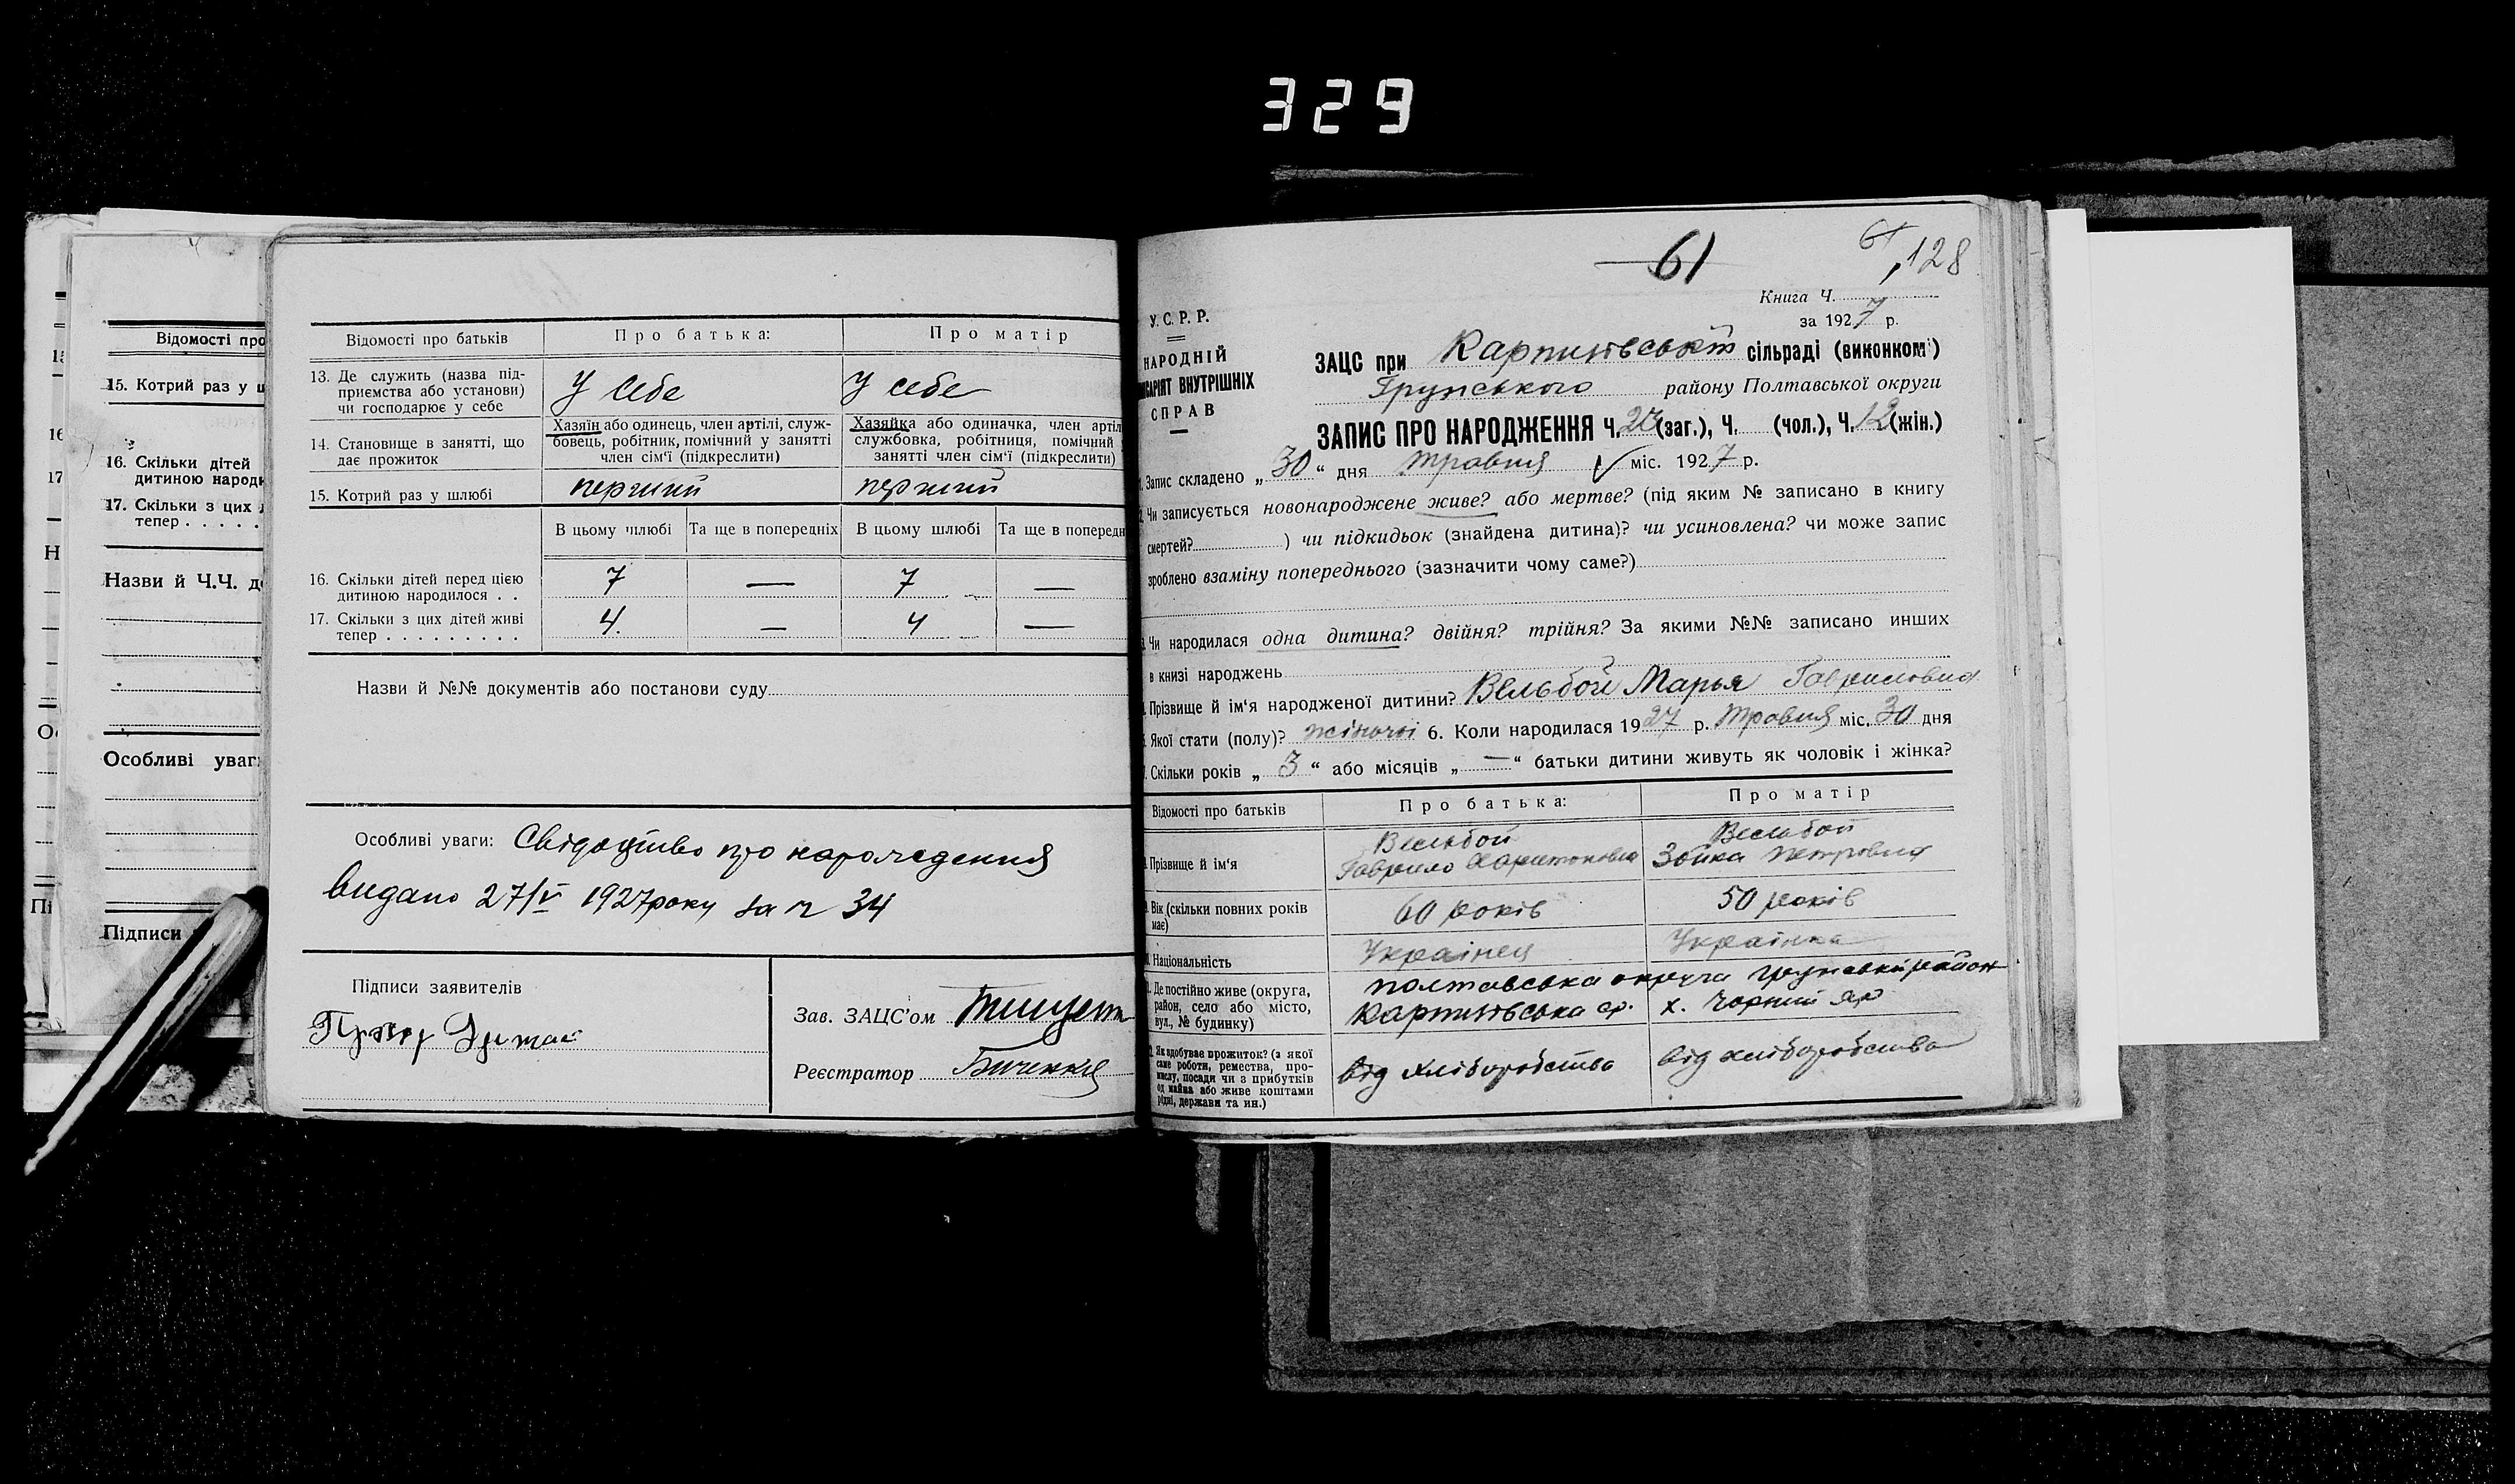 329
Відомості про
15. Котрий раз у ш
16. Скільки дітей
дитиною народи
17. Скільки з цих д
тепер . . . . .
Назви й Ч.Ч. до
Особливі уваги
Підписи
Відомості про батьків Про батька: Про матір
13. Де служить (назва під-
приємства або установи)
чи господарює у себе
У себе У себе
14. Становище в занятті, що
дає прожиток
Хазяїн або одинець, член артілі, служ-
бовець, робітник, помічний у занятті
член сім'ї (підкреслити)
Хазяйка або одиначка, член артіл
службовка, робітниця, помічний у
занятті член сім'ї (підкреслити)
15. Котрий раз у шлюбі перший перший
В цьому шлюбі Та ще в попередніх В цьому шлюбі Та ще в попередн
16. Скільки дітей перед цією
дитиною народилося . . 7 — 7 —
17. Скільки з цих дітей живі
тепер . . . . . . . . . 4. — 4 —
Назви й №№ документів або постанови суду
Особливі уваги: Свідоцтво про народження
видано 27/V 1927 року за ч 34
Підписи заявителів
Зав. ЗАЦС'ом
Реєстратор
61
61
128
Книга Ч.
за 1927 р.
У.С.Р.Р.
НАРОДНІЙ
КОМІСАРІЯТ ВНУТРІШНІХ
СПРАВ
ЗАЦС при Карпинвській сільраді (виконкомі)
Грунського району Полтавської округи
ЗАПИС ПРО НАРОДЖЕННЯ Ч. (заг.), Ч. (чол.), Ч. 12 (жін.)
1. Запис складено „30“ дня травня міс. 1927 р.
2. Чи записується новонароджене живе? або мертве? (під яким № записано в книгу
смертей? ) чи підкидьок (знайдена дитина)? чи усиновлена? чи може запис
зроблено взаміну попереднього (зазначити чому саме?)
3. Чи народилася одна дитина? двійня? трійня? За якими №№ записано инших
в книзі народжень
4. Прізвище й ім'я народженої дитини? Вельбой Марья Гавриловна
5. Якої стати (полу)? жіночої 6. Коли народилася 1927 р. травня міс. 30 дня
7. Скільки років „3“ або місяців „—“ батьки дитини живуть як чоловік і жінка?
Відомості про батьків Про батька: Про матір
8. Прізвище й ім'я
Вельбой
Гаврило Харитонович
Вельбой
Зойка Петровна
9. Вік (скільки повних років
має)
60 років 50 років
10. Національність Українец Українка
11. Де постійно живе (округа,
район, село або місто,
вул., № будинку)
полтавська округа грунський район
Карпинвська ср. х. Чорний яр
12. Як здобуває прожиток? (з якої
саме роботи, ремества, про-
мислу, посади чи з прибутків
од майна або живе коштами
рідні, держави та ин.)
від хліборобства від хліборобства